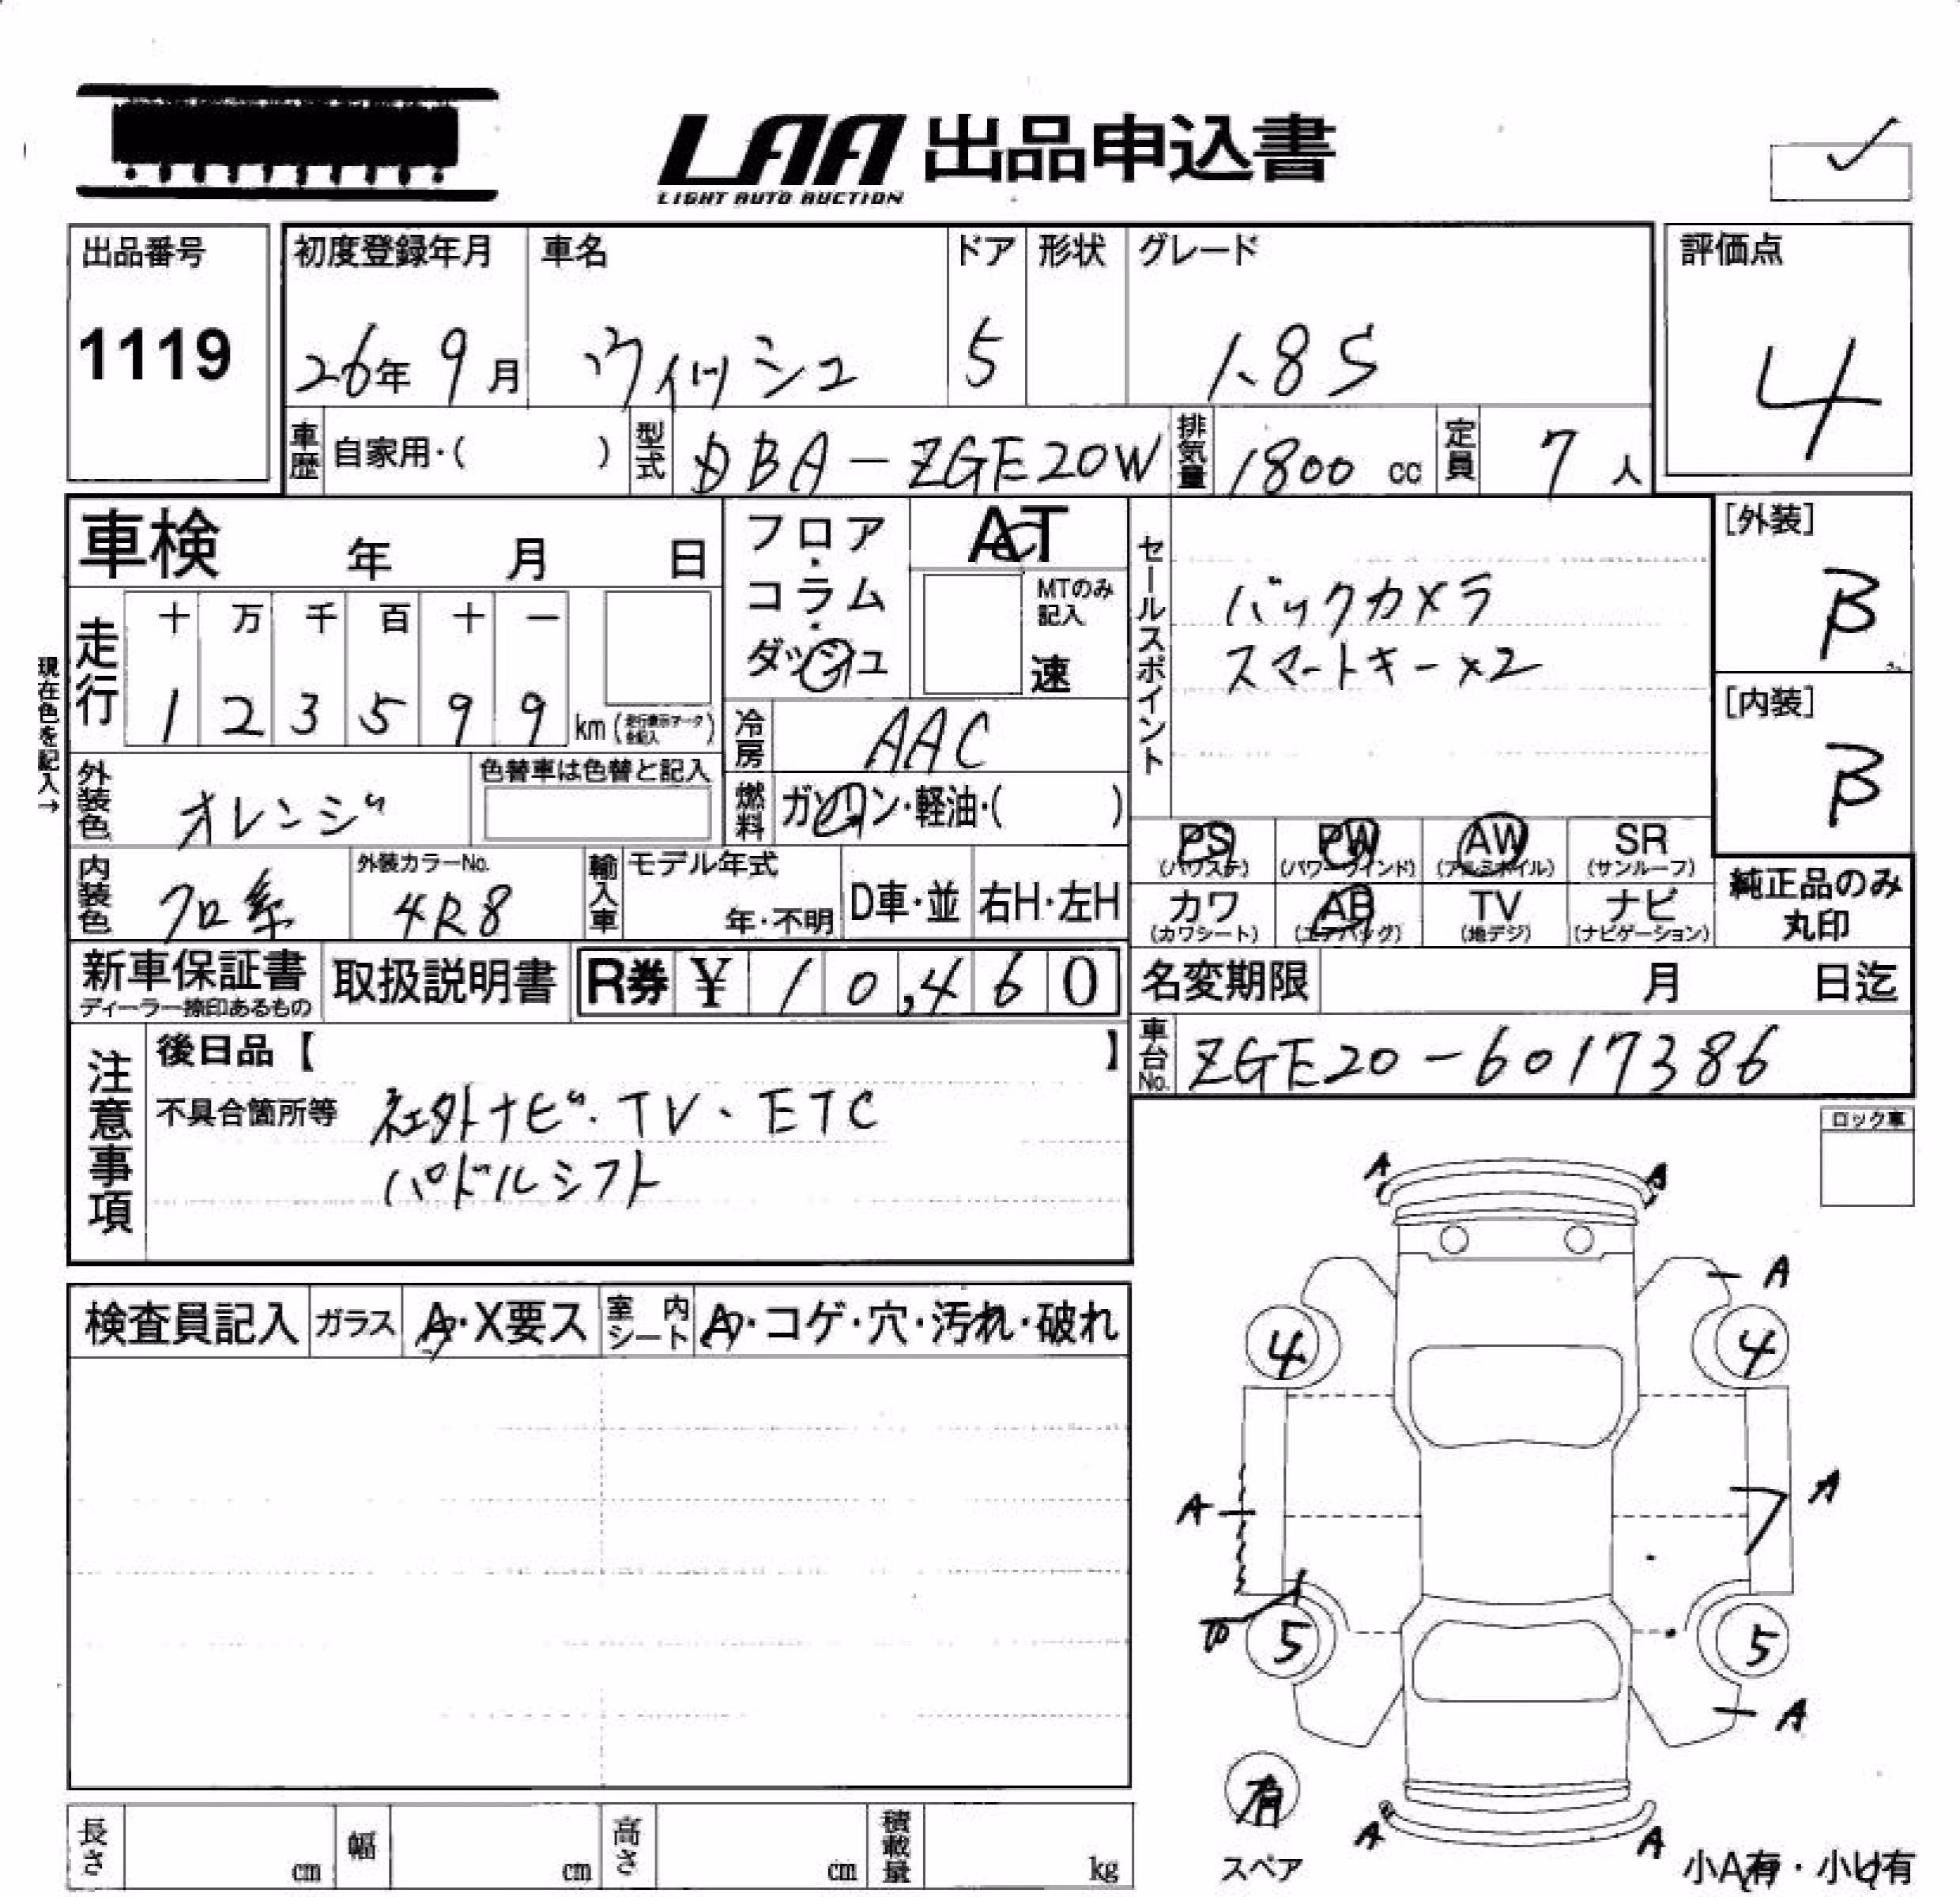 LAA 出品申込書
LIGHT AUTO AUCTION
出品番号
1119
初度登録年月
26年 9月
車名
ウィッシュ
ドア
5
形状
グレード
1.8S
評価点
4
車歴 自家用・( )
型式 DBA-ZGE20W
排気量 1800 cc
定員 7 人
車検 年 月 日
フロア・コラム・ダッシュ
AT
MTのみ記入
速
セールスポイント
バックカメラ
スマートキー×2
[外装]
B
[内装]
B
現在色を記入→
走行
十 万 千 百 十 一
1 2 3 5 9 9 km
冷房 AAC
外装色 オレンジ
色替車は色替と記入
燃料 ガソリン・軽油・( )
PS (パワステ)
PW (パワーウインド)
AW (アルミホイル)
SR (サンルーフ)
内装色 クロ系
外装カラーNo. 4R8
輸入車
モデル年式
年・不明
D車・並
右H・左H
カワ (カワシート)
AB (エアバッグ)
TV (地デジ)
ナビ (ナビゲーション)
純正品のみ
丸印
新車保証書
ディーラー捺印あるもの
取扱説明書
R券 ¥ 10,460
名変期限 月 日迄
車台No. ZGE20-6017386
注意事項
後日品【 】
不具合箇所等 社外ナビ・TV・ETC
パドルシフト
ロック車
検査員記入
ガラス A・X要ス
室内シート A・コゲ・穴・汚れ・破れ
A A
A
4 4
A A
5 5
A
有
スペア
A A
小A有・小U有
長さ cm
幅 cm
高さ cm
積載量 kg